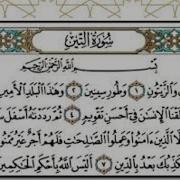 سُورَةُ التِّينِ
بِسْمِ اللَّهِ الرَّحْمَٰنِ الرَّحِيمِ
وَالزَّيْتُونِ ١ وَطُورِ سِينِينَ ٢ وَهَٰذَا الْبَلَدِ
خَلَقْنَا الْإِنسَٰنَ فِي أَحْسَنِ تَقْوِيمٍ ٤ ثُمَّ رَدَدْنَٰهُ أَسْفَلَ
الَّذِينَ ءَامَنُوا وَعَمِلُوا الصَّٰلِحَٰتِ فَلَهُمْ أَجْرٌ غَيْرُ
يُكَذِّبُكَ بَعْدُ بِالدِّينِ ٧ أَلَيْسَ اللَّهُ بِأَحْكَمِ الْحَٰكِمِينَ